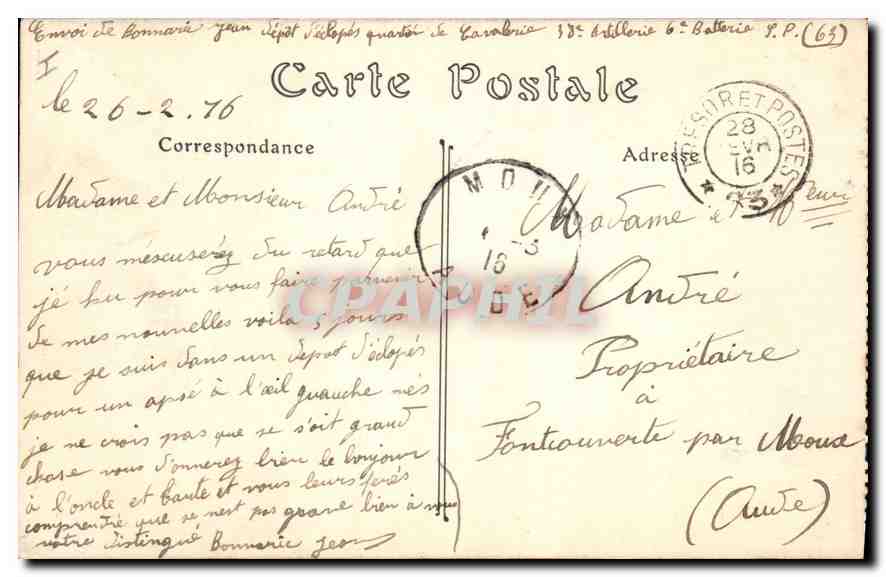 Envoi de Bonnarie Jean dépot d'éclopés quartier de Cavalerie 3 Artillerie 6e Batterie S.P. (63)
I
Carte Postale
le 26-2.16
Correspondance
Adresse
TRESOR ET POSTES
28
16
* 23 *
MOU
-3
16
AUDE
Madame et Monsieur André
vous m'escuserez du retard que
jé hu pour vous faire parvenir
de mes nouvelles voila 5 jours
que je suis dans un depot d'éclopés
pour un apsé à l'œil guauche més
je ne crois pas que se s'oit grand
chose vous donnerez bien le bonjour
à l'oncle et tante et vous leurs ferés
comprendré que se nest pas grave bien à vous
votre distingué Bonnarie Jean
Madame et Mr
André
Propriétaire
à
Fontcouverte par Moux
(Aude)
CPAPHIL